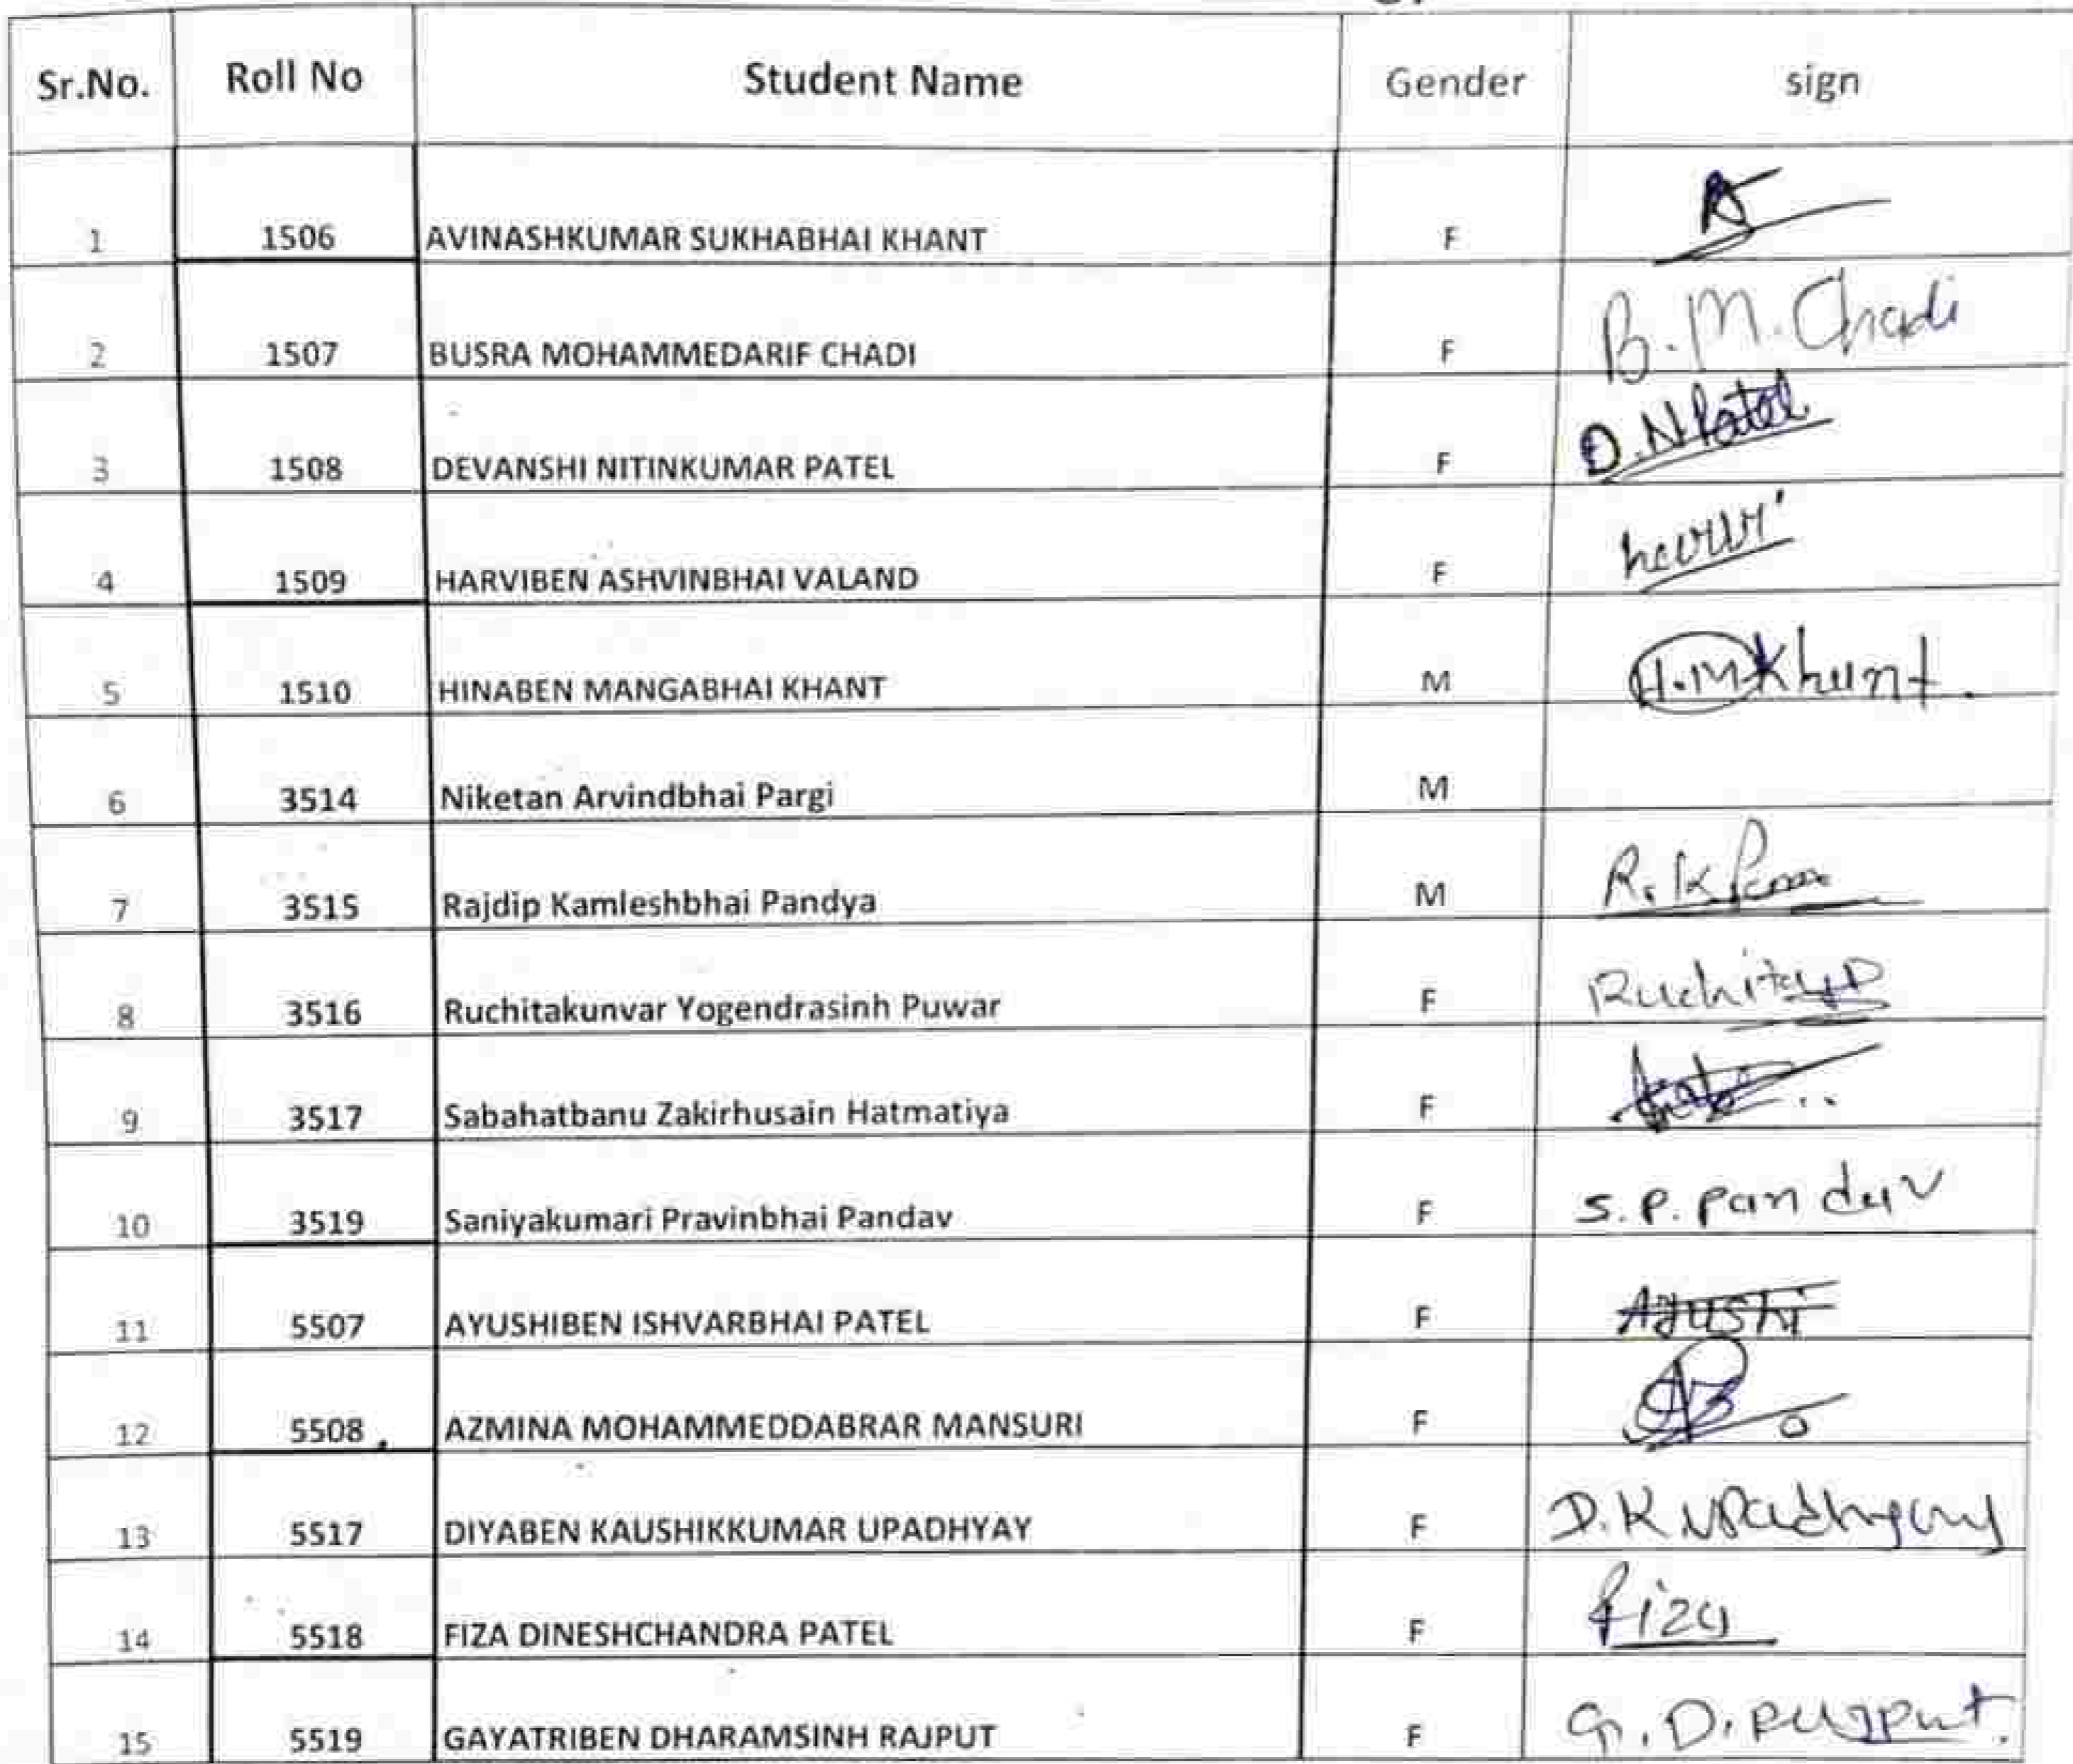 Sr.No. Roll No Student Name Gender sign
1 1506 AVINASHKUMAR SUKHABHAI KHANT F
2 1507 BUSRA MOHAMMEDARIF CHADI F B.M.Chadi
3 1508 DEVANSHI NITINKUMAR PATEL F D.NPatel
4 1509 HARVIBEN ASHVINBHAI VALAND F harvi
5 1510 HINABEN MANGABHAI KHANT M H.M Khant.
6 3514 Niketan Arvindbhai Pargi M
7 3515 Rajdip Kamleshbhai Pandya M R.K
8 3516 Ruchitakunvar Yogendrasinh Puwar F Ruchitayp
9 3517 Sabahatbanu Zakirhusain Hatmatiya F
10 3519 Saniyakumari Pravinbhai Pandav F S.P. pandav
11 5507 AYUSHIBEN ISHVARBHAI PATEL F Ayushi
12 5508. AZMINA MOHAMMEDDABRAR MANSURI F
13 5517 DIYABEN KAUSHIKKUMAR UPADHYAY F D.K Upadhyay
14 5518 FIZA DINESHCHANDRA PATEL F fiza
15 5519 GAYATRIBEN DHARAMSINH RAJPUT F G.D.rajput.